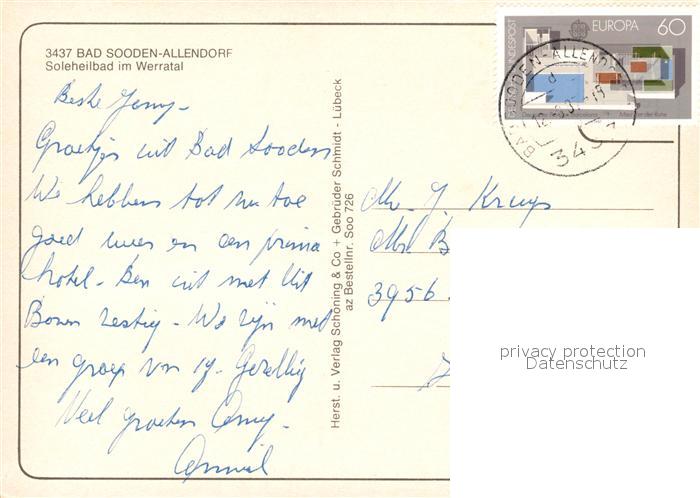 3437 BAD SOODEN-ALLENDORF
Soleheilbad im Werratal
Beste Jenny -
Groetjes uit Bad Sooden
We hebben tot nu toe
goed weer en een prima
hotel - Ben uit met Uit
Bonen zestig - We zijn met
een groep van 19. Gezellig
Veel groeten
Herst. u. Verlag Schöning & Co + Gebrüder Schmidt - Lübeck
az Bestellnr. Soo 726
BUNDESPOST
EUROPA 60
BAD SOODEN-ALLENDORF
d
3437
J. Kruys
3956
privacy protection
Datenschutz